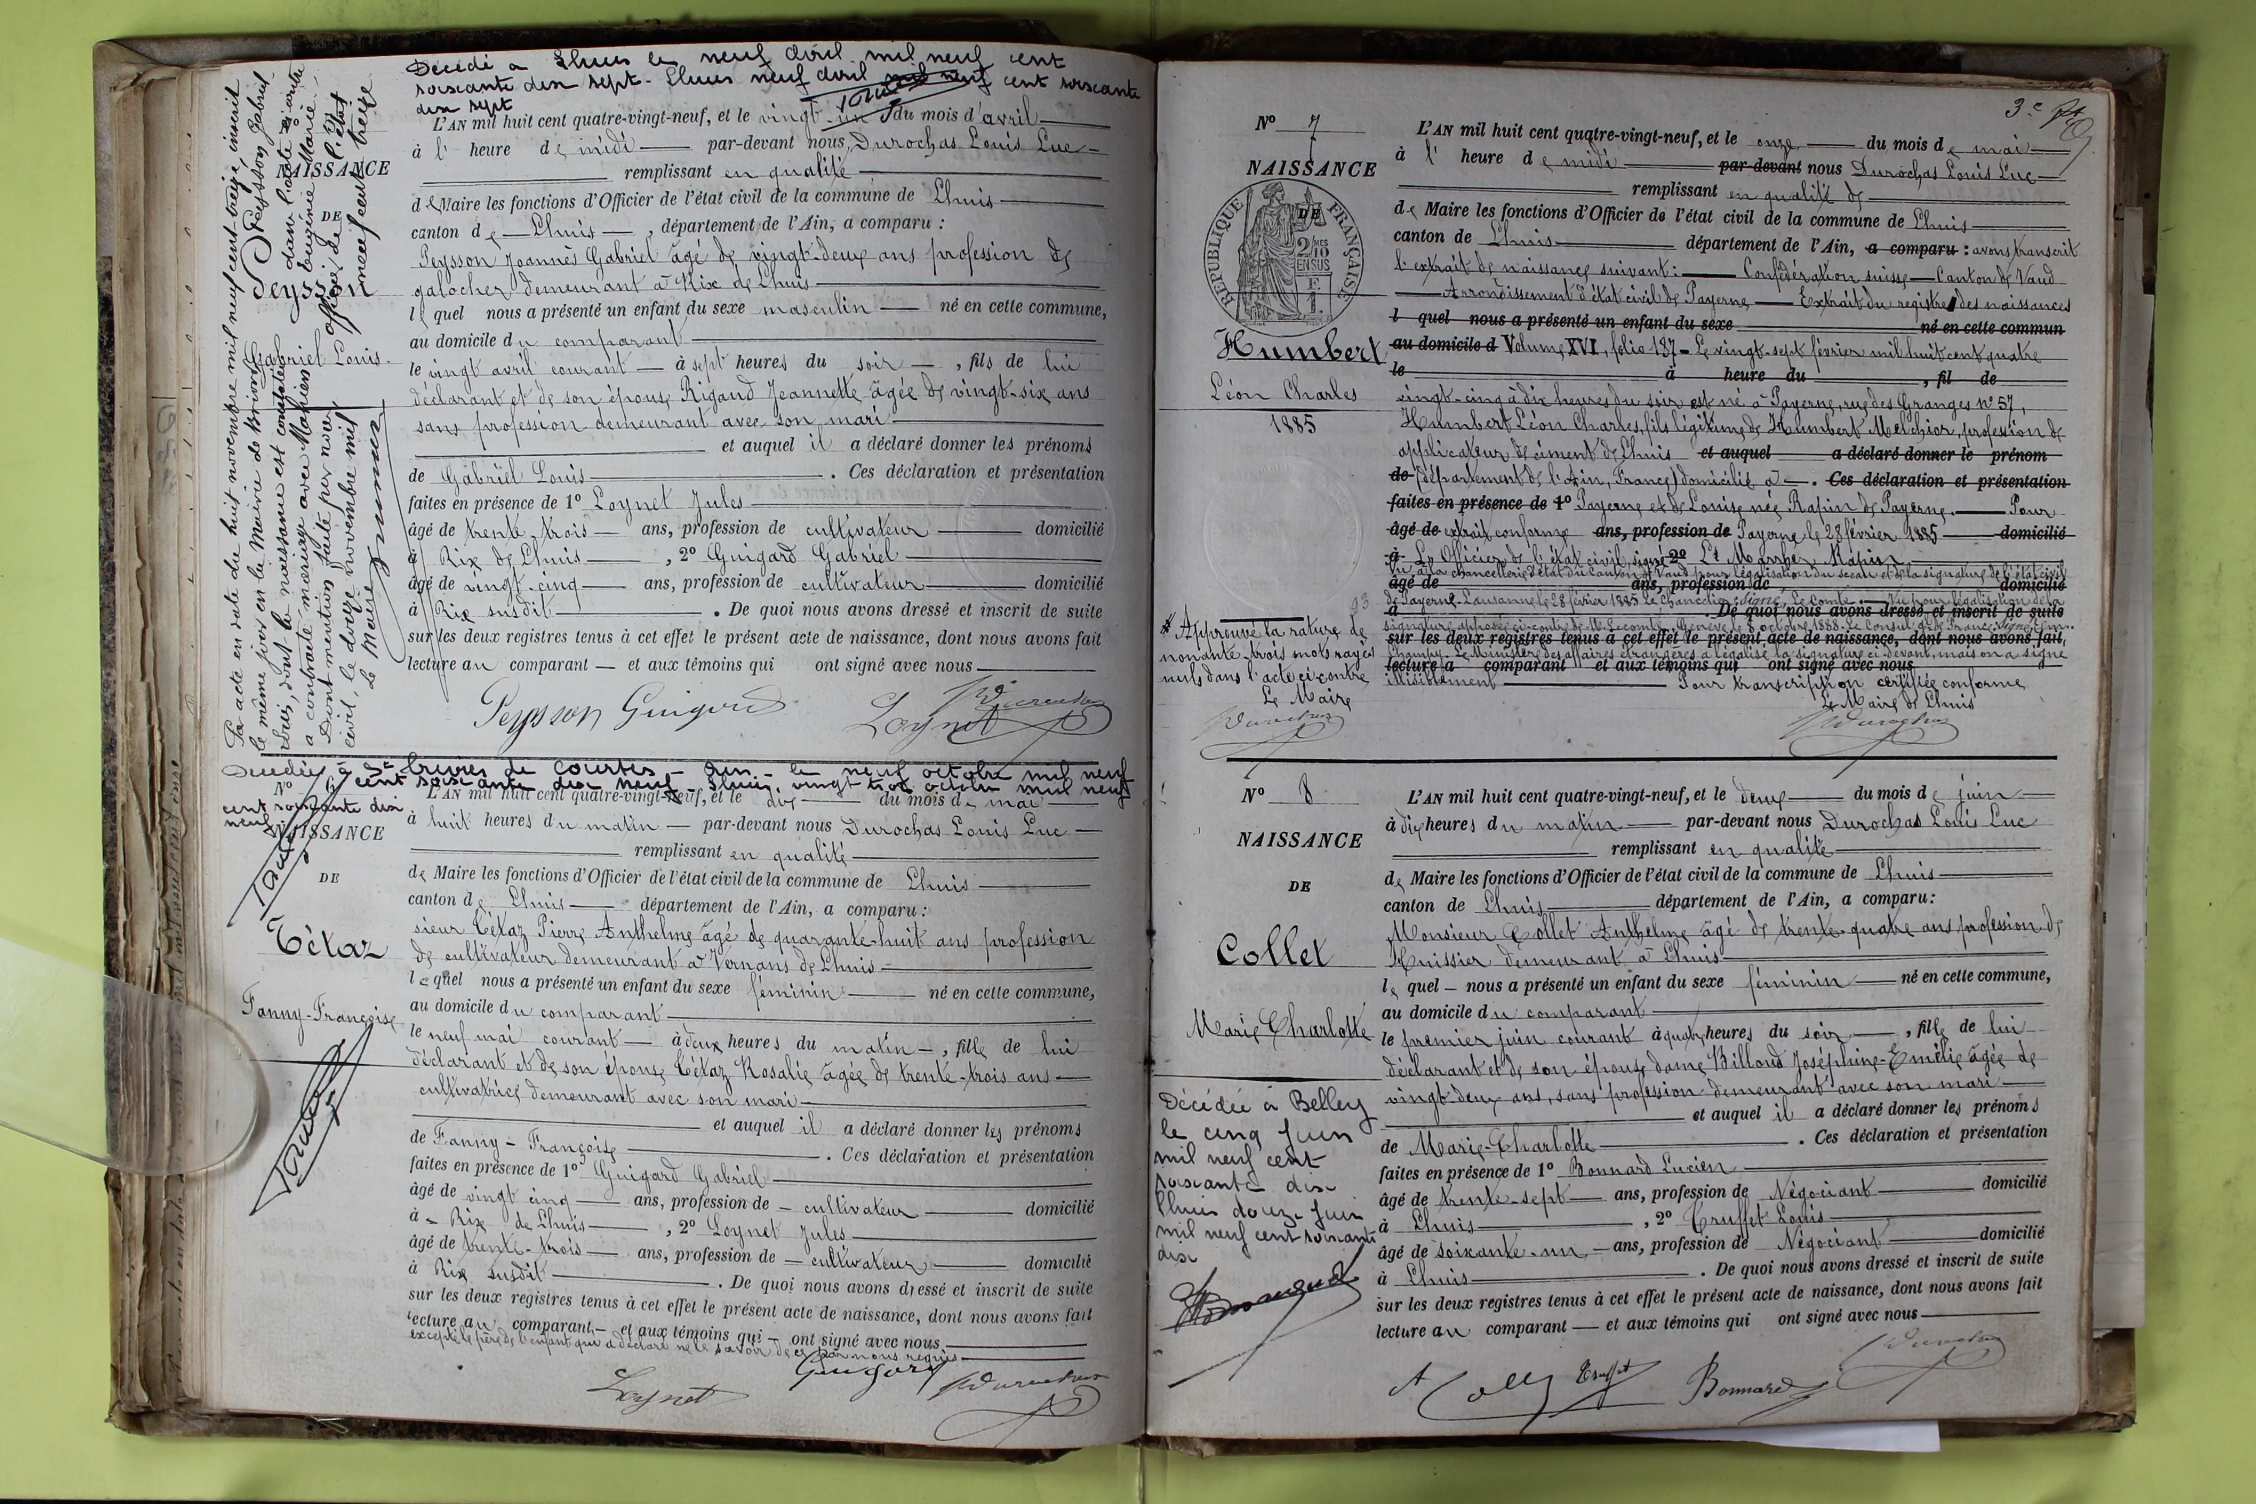 Décédé à Lhuis le neuf avril mil neuf cent
soixante dix sept - Lhuis neuf avril mil neuf cent soixante
dix sept
L'AN mil huit cent quatre-vingt-neuf, et le vingt-un du mois d'avril
à l' heure de midi par-devant nous Durochas Louis Luc
remplissant en qualité
de Maire les fonctions d'Officier de l'état civil de la commune de Lhuis
canton de Lhuis, département de l'Ain, a comparu :
Peysson Joannès Gabriel âgé de vingt-deux ans profession de
galocher demeurant à Rix de Lhuis
lequel nous a présenté un enfant du sexe masculin né en cette commune,
au domicile du comparant
le vingt avril courant à sept heures du soir, fils de lui
déclarant et de son épouse Rigaud Jeannette âgée de vingt-six ans
sans profession demeurant avec son mari
et auquel il a déclaré donner les prénoms
de Gabriel Louis. Ces déclaration et présentation
faites en présence de 1º Loynet Jules
âgé de trente-trois ans, profession de cultivateur domicilié
à Rix de Lhuis, 2º Guigard Gabriel
âgé de vingt-cinq ans, profession de cultivateur domicilié
à Rix susdit. De quoi nous avons dressé et inscrit de suite
sur les deux registres tenus à cet effet le présent acte de naissance, dont nous avons fait
lecture au comparant et aux témoins qui ont signé avec nous
Peysson Guigard Loynet Durochas
NAISSANCE
DE
Peysson
Gabriel Louis
Par acte en date du huit novembre mil neuf cent treize, inscrit
le même jour en la Mairie de Peysson Gabriel
Louis, dont la naissance est constatée dans l'acte ci-contre
a contracté mariage avec Eugénie Marie
Dont mention faite par nous officier de l'état
civil, le douze novembre mil neuf cent treize
Le Maire
Décédée à St Trivier de Courtes - Ain - le neuf octobre mil neuf
cent soixante dix neuf - Lhuis, vingt trois octobre mil neuf
cent soixante dix
neuf
Nº 6
NAISSANCE
DE
Tétaz
Fanny-Françoise
L'AN mil huit cent quatre-vingt-neuf, et le dix du mois de mai
à huit heures du matin par-devant nous Durochas Louis Luc
remplissant en qualité
de Maire les fonctions d'Officier de l'état civil de la commune de Lhuis
canton de Lhuis département de l'Ain, a comparu :
sieur Tétaz Pierre Anthelme âgé de quarante-huit ans profession
de cultivateur demeurant à Vernans de Lhuis
lequel nous a présenté un enfant du sexe féminin né en cette commune,
au domicile du comparant
le neuf mai courant à deux heures du matin, fille de lui
déclarant et de son épouse Tétaz Rosalie âgée de trente-trois ans
cultivatrice demeurant avec son mari
et auquel il a déclaré donner les prénoms
de Fanny-Françoise. Ces déclaration et présentation
faites en présence de 1º Guigard Gabriel
âgé de vingt cinq ans, profession de cultivateur domicilié
à Rix de Lhuis, 2º Loynet Jules
âgé de trente-trois ans, profession de cultivateur domicilié
à Rix susdit. De quoi nous avons dressé et inscrit de suite
sur les deux registres tenus à cet effet le présent acte de naissance, dont nous avons fait
lecture au comparant et aux témoins qui ont signé avec nous
excepté le père de l'enfant qui a déclaré ne le savoir de ce par nous requis
Loynet Guigard Durochas
3e
Nº 7
NAISSANCE
DE
RÉPUBLIQUE FRANÇAISE
2/10 EN SUS
Humbert
Léon Charles
1885
L'AN mil huit cent quatre-vingt-neuf, et le onze du mois de mai
à l' heure de midi par-devant nous Durochas Louis Luc
remplissant en qualité de
de Maire les fonctions d'Officier de l'état civil de la commune de Lhuis
canton de Lhuis département de l'Ain, a comparu : avons transcrit
l'extrait de naissance suivant : Confédération suisse - Canton de Vaud
Arrondissement d'état civil de Payerne - Extrait du registre des naissances
l quel nous a présenté un enfant du sexe né en cette commun
au domicile d Volume XVI, folio 187 - Le vingt-sept février mil huit cent quatre
le à heure du , fil de
vingt-cinq à dix heures du soir est né à Payerne, rue des Granges nº 57,
Humbert Léon Charles, fils légitime de Humbert Melchior, profession de
applicateur de ciment de Lhuis et auquel a déclaré donner le prénom
de (département de l'Ain, France) domicilié à . Ces déclaration et présentation
faites en présence de 1º Payerne et de Louise née Rapin de Payerne. Pour
âgé de extrait conforme ans, profession de Payerne le 28 février 1885 domicilié
à Le Officier de l'état civil, signé 2º
Vu à la chancellerie d'état du Canton de Vaud pour légalisation du sceau et de la signature de l'état civil
âgé de ans, profession de domicilié
de Payerne. Lausanne le 28 février 1885 Le Chancelier : Signé, Le Comte. Vu pour légalisation de la
à De quoi nous avons dressé et inscrit de suite
signature apposée ci-contre de M. Lecomte. Genève le 8 octobre 1888. Le Consul gal de France Signé
sur les deux registres tenus à cet effet le présent acte de naissance, dont nous avons fait
Champy. Le Ministère des affaires étrangères a légalisé la signature ci-devant, mais on a signé
lecture a comparant et aux témoins qui ont signé avec nous
illisiblement Pour transcription certifiée conforme
Le Maire de Lhuis
Durochas
Approuvé la rature de
nonante-trois mots rayés
nuls dans l'acte ci-contre
Le Maire
Durochas
Nº 8
NAISSANCE
DE
Collet
Marie Charlotte
L'AN mil huit cent quatre-vingt-neuf, et le deux du mois de juin
à dix heures du matin par-devant nous Durochas Louis Luc
remplissant en qualité
de Maire les fonctions d'Officier de l'état civil de la commune de Lhuis
canton de Lhuis département de l'Ain, a comparu :
Monsieur Collet Anthelme âgé de trente-quatre ans profession de
Huissier demeurant à Lhuis
lequel nous a présenté un enfant du sexe féminin né en cette commune,
au domicile du comparant
le premier juin courant à quatre heures du soir, fille de lui
déclarant et de son épouse dame Billoud Joséphine-Emélie âgée de
vingt-deux ans, sans profession demeurant avec son mari
et auquel il a déclaré donner les prénoms
de Marie-Charlotte. Ces déclaration et présentation
faites en présence de 1º Bonnard Lucien
âgé de trente-sept ans, profession de Négociant domicilié
à Lhuis, 2º Truffet Louis
âgé de soixante-un ans, profession de Négociant domicilié
à Lhuis. De quoi nous avons dressé et inscrit de suite
sur les deux registres tenus à cet effet le présent acte de naissance, dont nous avons fait
lecture au comparant et aux témoins qui ont signé avec nous
A Collet Truffet Bonnard Durochas
Décédée à Belley
le cinq juin
mil neuf cent
soixante dix
Lhuis douze juin
mil neuf cent soixante
dix